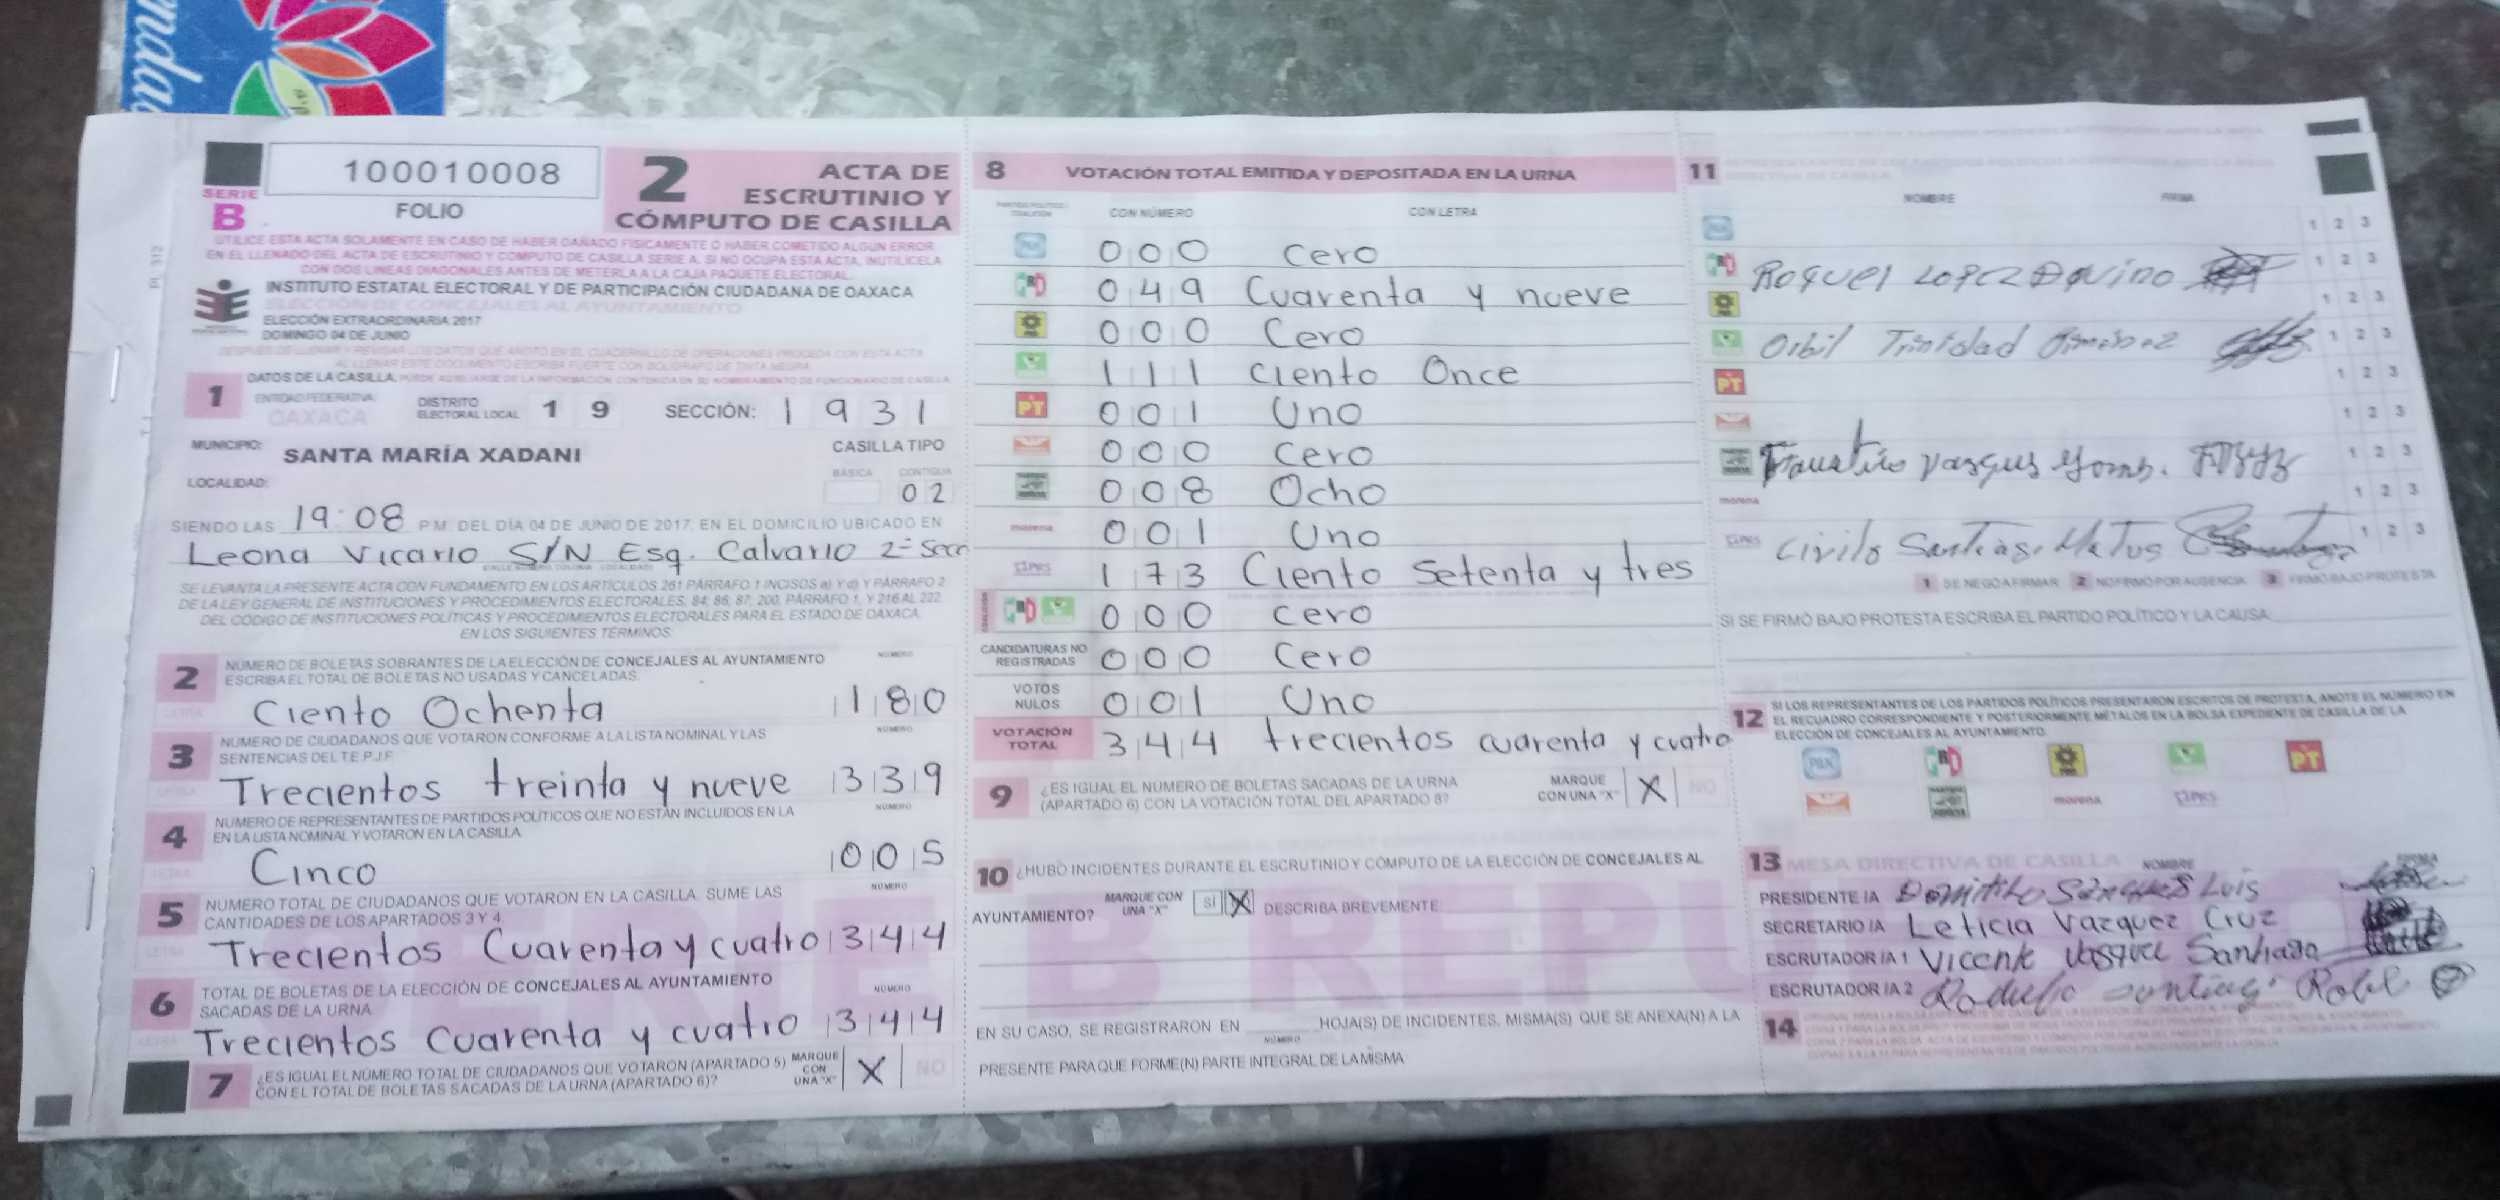 nda
SERIE
B
100010008
FOLIO
2
ACTA DE
ESCRUTINIO Y
CÓMPUTO DE CASILLA
UTILICE ESTA ACTA SOLAMENTE EN CASO DE HABER DAÑADO FÍSICAMENTE O HABER COMETIDO ALGÚN ERROR
EN EL LLENADO DEL ACTA DE ESCRUTINIO Y CÓMPUTO DE CASILLA SERIE A. SI NO OCUPA ESTA ACTA, INUTILÍCELA
CON DOS LÍNEAS DIAGONALES ANTES DE METERLA A LA CAJA PAQUETE ELECTORAL.
INSTITUTO ESTATAL ELECTORAL Y DE PARTICIPACIÓN CIUDADANA DE OAXACA
ELECCIÓN DE CONCEJALES AL AYUNTAMIENTO
ELECCIÓN EXTRAORDINARIA 2017
DOMINGO 04 DE JUNIO
1
DATOS DE LA CASILLA.
ENTIDAD FEDERATIVA:
OAXACA
DISTRITO
ELECTORAL LOCAL
1 9
SECCIÓN:
1 9 3 1
MUNICIPIO:
SANTA MARÍA XADANI
CASILLA TIPO
LOCALIDAD:
BÁSICA
CONTIGUA
02
SIENDO LAS 19:08 P.M. DEL DÍA 04 DE JUNIO DE 2017, EN EL DOMICILIO UBICADO EN
Leona Vicario S/N Esq. Calvario 2ª Secc
SE LEVANTA LA PRESENTE ACTA CON FUNDAMENTO EN LOS ARTÍCULOS 261 PÁRRAFO 1 INCISOS a) Y d) Y PÁRRAFO 2
DE LA LEY GENERAL DE INSTITUCIONES Y PROCEDIMIENTOS ELECTORALES, 84, 86, 87, 200, PÁRRAFO 1, Y 216 AL 222
DEL CÓDIGO DE INSTITUCIONES POLÍTICAS Y PROCEDIMIENTOS ELECTORALES PARA EL ESTADO DE OAXACA,
EN LOS SIGUIENTES TÉRMINOS:
2
NÚMERO DE BOLETAS SOBRANTES DE LA ELECCIÓN DE CONCEJALES AL AYUNTAMIENTO
ESCRIBA EL TOTAL DE BOLETAS NO USADAS Y CANCELADAS.
NÚMERO
Ciento Ochenta 180
3
NÚMERO DE CIUDADANOS QUE VOTARON CONFORME A LA LISTA NOMINAL Y LAS
SENTENCIAS DEL T.E.P.J.F.
NÚMERO
Trecientos treinta y nueve 339
4
NÚMERO DE REPRESENTANTES DE PARTIDOS POLÍTICOS QUE NO ESTÁN INCLUIDOS EN LA
EN LA LISTA NOMINAL Y VOTARON EN LA CASILLA
NÚMERO
Cinco 005
5
NÚMERO TOTAL DE CIUDADANOS QUE VOTARON EN LA CASILLA. SUME LAS
CANTIDADES DE LOS APARTADOS 3 Y 4
NÚMERO
Trecientos Cuarenta y cuatro 344
6
TOTAL DE BOLETAS DE LA ELECCIÓN DE CONCEJALES AL AYUNTAMIENTO
SACADAS DE LA URNA
NÚMERO
Trecientos Cuarenta y cuatro 344
7
¿ES IGUAL EL NÚMERO TOTAL DE CIUDADANOS QUE VOTARON (APARTADO 5)
CON EL TOTAL DE BOLETAS SACADAS DE LA URNA (APARTADO 6)?
MARQUE
CON
UNA "X"
X
NO
8
VOTACIÓN TOTAL EMITIDA Y DEPOSITADA EN LA URNA
CON NÚMERO
CON LETRA
PAN 000 Cero
PRI 049 Cuarenta y nueve
000 Cero
111 Ciento Once
PT 001 Uno
000 Cero
008 Ocho
morena 001 Uno
173 Ciento Setenta y tres
COALICIÓN PRI 000 Cero
CANDIDATURAS NO
REGISTRADAS
000 Cero
VOTOS
NULOS
001 Uno
VOTACIÓN
TOTAL
344 trecientos cuarenta y cuatro
9
¿ES IGUAL EL NÚMERO DE BOLETAS SACADAS DE LA URNA
(APARTADO 6) CON LA VOTACIÓN TOTAL DEL APARTADO 8?
MARQUE
CON UNA "X"
X
NO
10
¿HUBO INCIDENTES DURANTE EL ESCRUTINIO Y CÓMPUTO DE LA ELECCIÓN DE CONCEJALES AL
AYUNTAMIENTO?
MARQUE CON
UNA "X"
SI
X
DESCRIBA BREVEMENTE:
EN SU CASO, SE REGISTRARON EN HOJA(S) DE INCIDENTES, MISMA(S) QUE SE ANEXA(N) A LA
NÚMERO
PRESENTE PARA QUE FORME(N) PARTE INTEGRAL DE LA MISMA
11
NOMBRE
FIRMA
1 2 3
1 2 3
1 2 3
1 2 3
1 2 3
1 2 3
1 2 3
1 2 3
1 2 3
PRI Roquel Lopez Aquino
Orbil Trinidad Jimenez
PT
Faustino Vasques Gomz.
morena
Cirilo Santiago Matus
1 SE NEGÓ A FIRMAR 2 NO FIRMÓ POR AUSENCIA 3 FIRMÓ BAJO PROTESTA
SI SE FIRMÓ BAJO PROTESTA ESCRIBA EL PARTIDO POLÍTICO Y LA CAUSA:
12
SI LOS REPRESENTANTES DE LOS PARTIDOS POLÍTICOS PRESENTARON ESCRITOS DE PROTESTA, ANOTE EL NÚMERO EN
EL RECUADRO CORRESPONDIENTE Y POSTERIORMENTE MÉTALOS EN LA BOLSA EXPEDIENTE DE CASILLA DE LA
ELECCIÓN DE CONCEJALES AL AYUNTAMIENTO.
PAN PRI PT
morena
13
MESA DIRECTIVA DE CASILLA
NOMBRE
PRESIDENTE /A Luis
SECRETARIO /A Leticia Vazquez Cruz
ESCRUTADOR /A 1 Vicente Vasquez Santiago
ESCRUTADOR /A 2 Rodulfo
14
SERIE B REPU